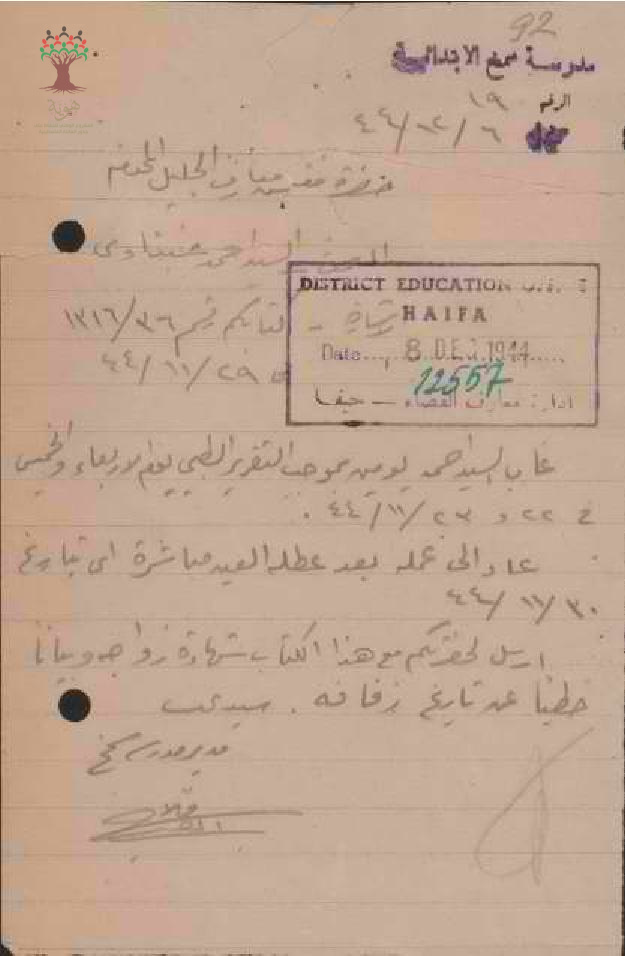 92
مدرسة سمخ الابتدائية
الرقم ١٩
٦/١٢/٤٤
هوية
حضرة مفتش معارف الجليل المحترم
السيد احمد
DISTRICT EDUCATION
HAIFA
Date... 8 DEC 1944.....
12557
ادارة معارف القضاء – حيفا
كتابكم رقم ١٣١٦/٣٦
٢٩/١١/٤٤
غاب السيد احمد يومين بموجب التقرير الطبي يوم الاربعاء والخميس
في ٢٢ و ٢٣/١١/٤٤ .
عاد الى عمله بعد عطلة العيد مباشرة اي بتاريخ
٣٠/١١/٤٤
ارسل لحضرتكم مع هذا الكتاب شهادة زواجه وبيانا
خطيا عن تاريخ زفافه . سيدي
مدير مدرسة سمخ